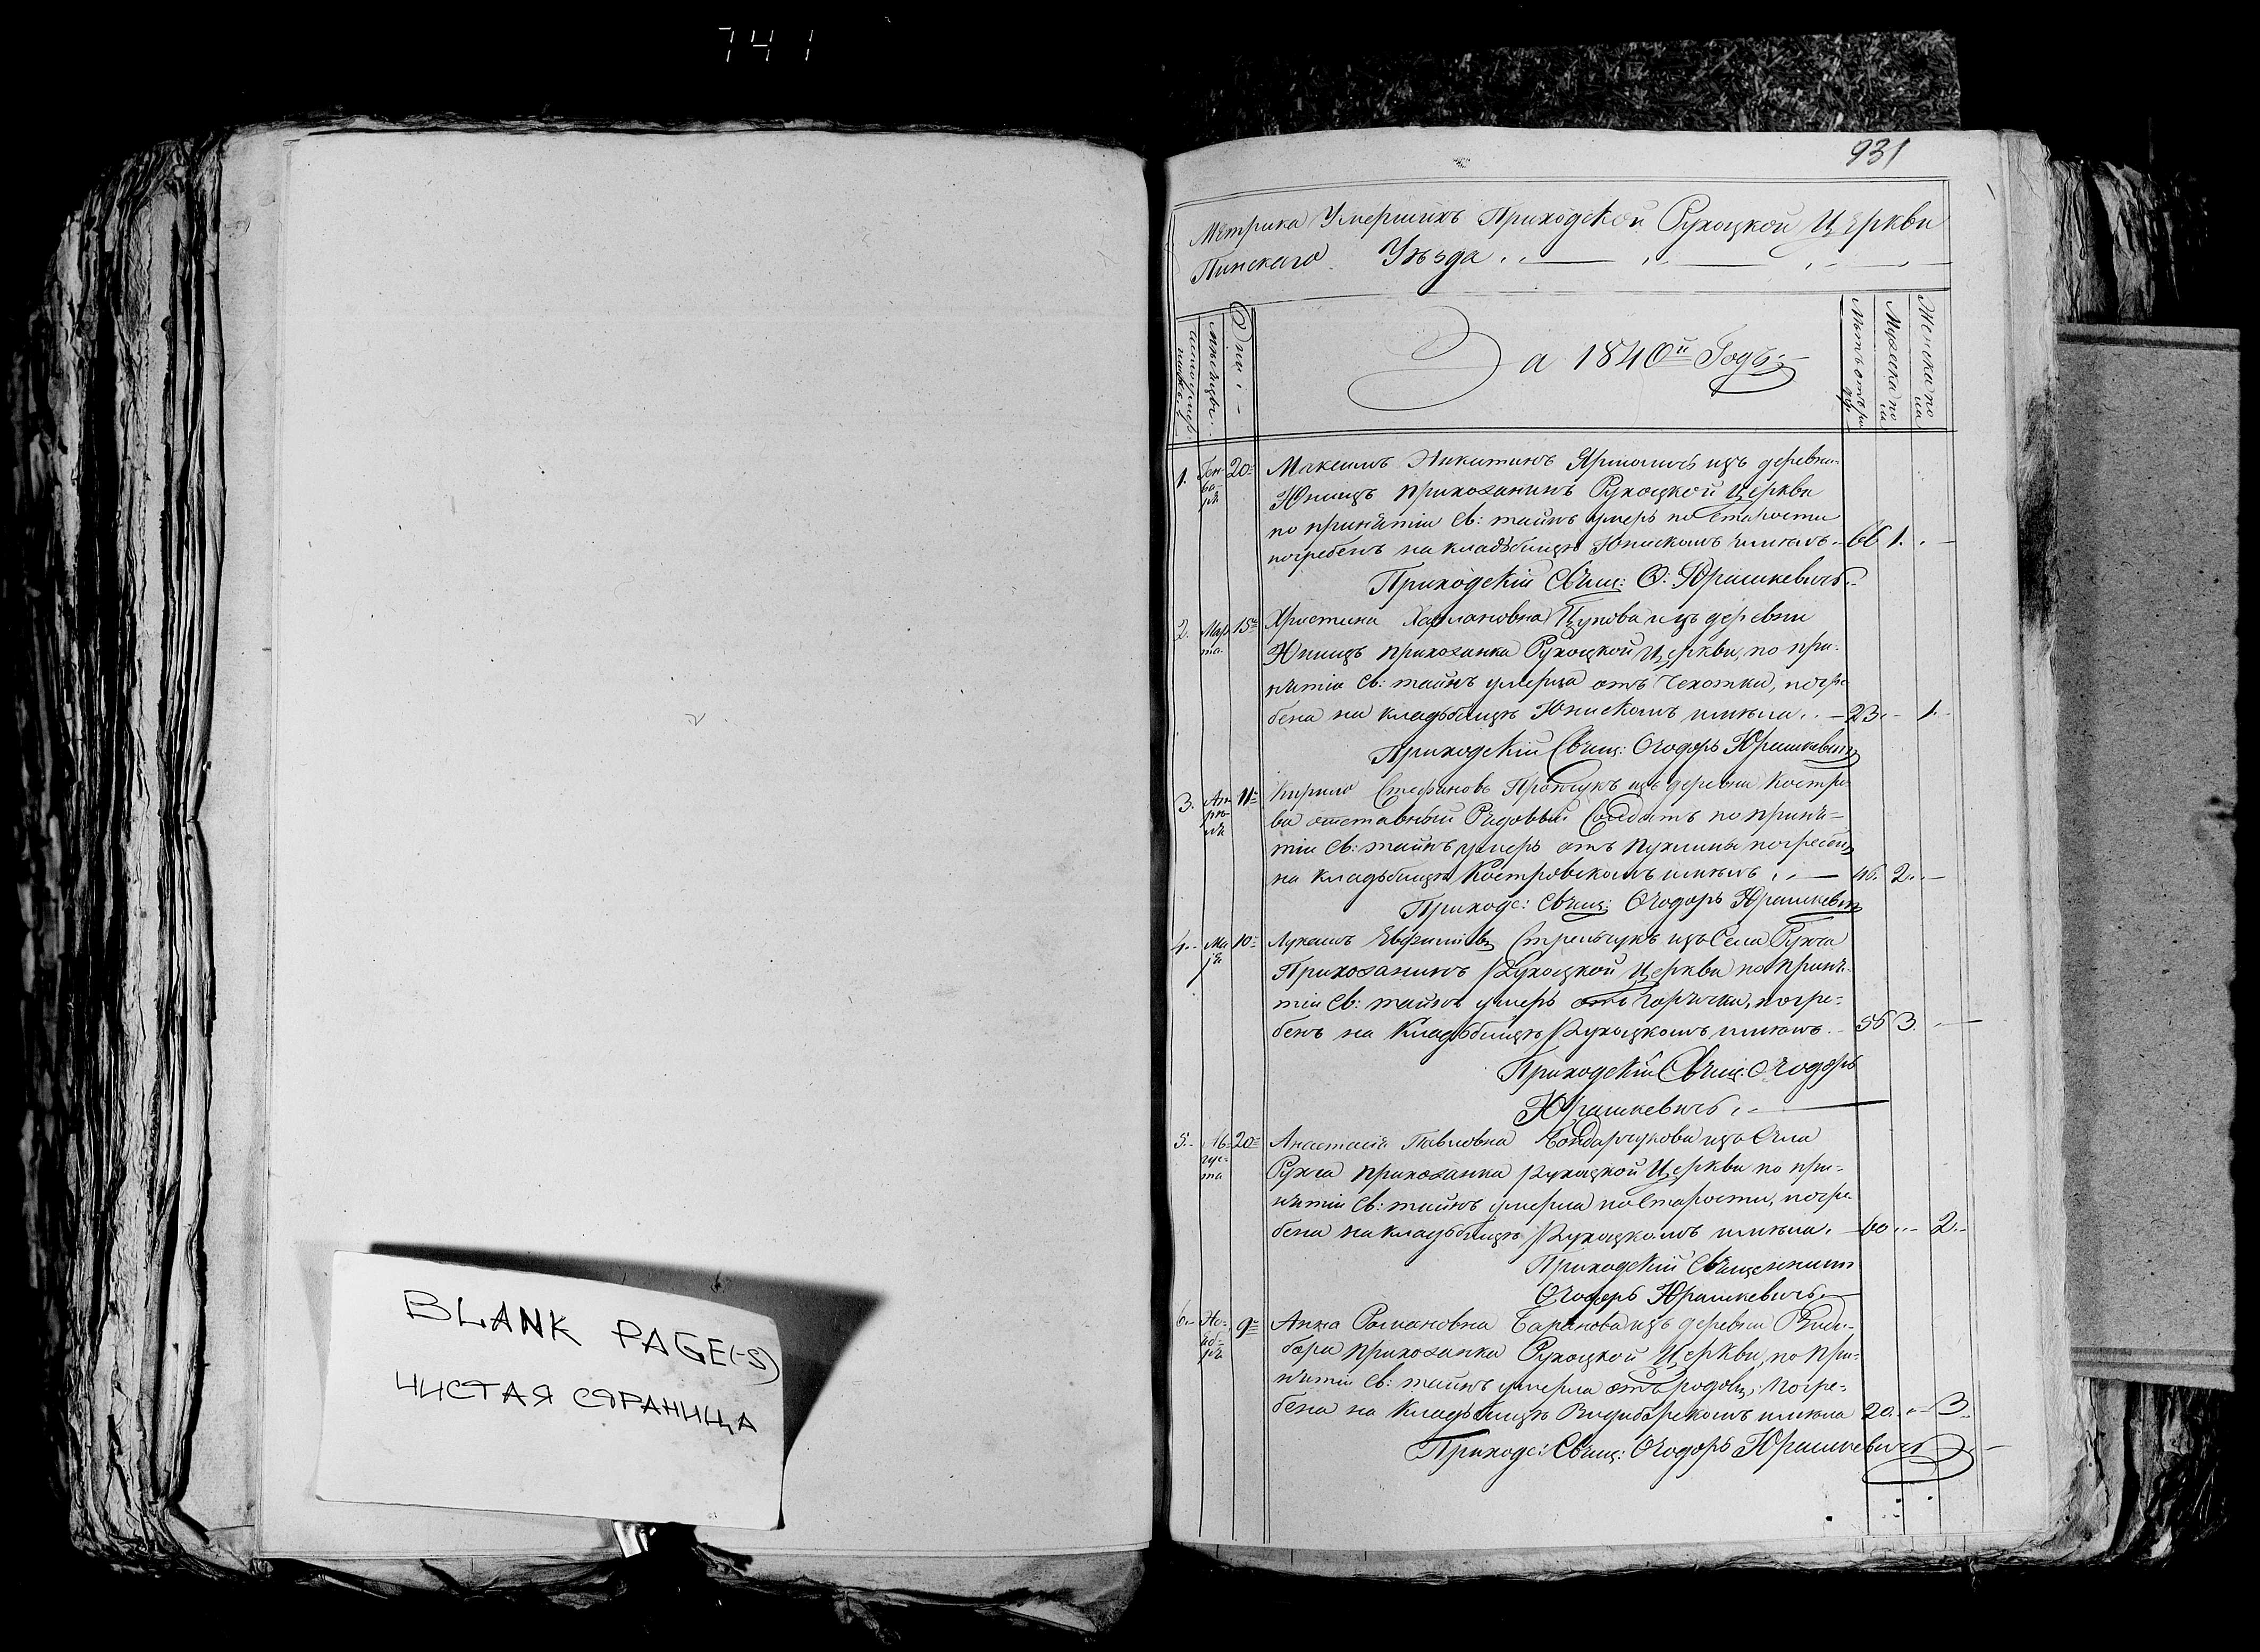 741
BLANK PAGE(-S)
ЧИСТАЯ СТРАНИЦА
931
Метрика Умершихъ Приходской Рухоцкой Церкви
Пинскаго Уѣзда
Число умер
Мѣсяцы
Дни
За 1840й Годъ
Лѣтъ отъ
Мужеска по
ла
Женска по
ла
1. Ген
ва
ря 20 Максимъ Никитинъ изъ деревни
Юнищъ прихожанинъ Рухоцкой Церкви
по принятіи Св: таинъ умеръ по старости
погребенъ на кладьбищѣ Юнискомъ имѣлъ 66 1.
Приходскій Свящ: Ѳ: Юрашкевичъ
2. Мар
та 15 Христина Харлановна изъ деревни
Юнищъ прихожанка Рухоцкой Церкви, по при-
нятіи Св: таинъ умерла отъ Чехотки, погре
бена на кладьбищѣ Юнискомъ имѣла 23. 1.
Приходскій Свящ: Ѳеодоръ Юрашкевичъ
3. Ап
рѣ
ля 11 Кирило Стефановъ изъ деревни Костро
ва отставный Рядовый Солдатъ по приня-
тіи Св: таинъ умеръ отъ пухлины погребенъ
на кладьбищѣ Костровскомъ имѣлъ 46. 2.
Приходс: Свящ: Ѳеодоръ Юрашкевичъ
4. Ма
я 10 Лукашъ Стрельчукъ изъ Села Рухча
Прихожанинъ Рухоцкой Церкви по приня-
тіи Св: таинъ умеръ отъ горячки, погре-
бенъ на Кладьбищѣ Рухоцкомъ имѣлъ 56 3.
Приходскій Свящ: Ѳеодоръ
Юрашкевичъ
5. Ав
гус-
та 20 Анастасія Павловна Бондарчукова изъ Села
Рухча прихожанка Рухоцкой Церкви по при-
нятіи Св: таинъ умерла по старости, погре
бена на кладьбищѣ Рухоцкомъ имѣла 60 2.
Приходскій Священникъ
Ѳеодоръ Юрашкевичъ
6. Но-
яб-
ря 9 Анна Романовна Баранова изъ деревни Види-
бора прихожанка Рухоцкой Церкви, по при-
нятіи Св: таинъ умерла отъ родовъ, погре-
бена на Кладьбищѣ Видиборскомъ имѣла 20. 3.
Приходс: Свящ: Ѳеодоръ Юрашкевичъ